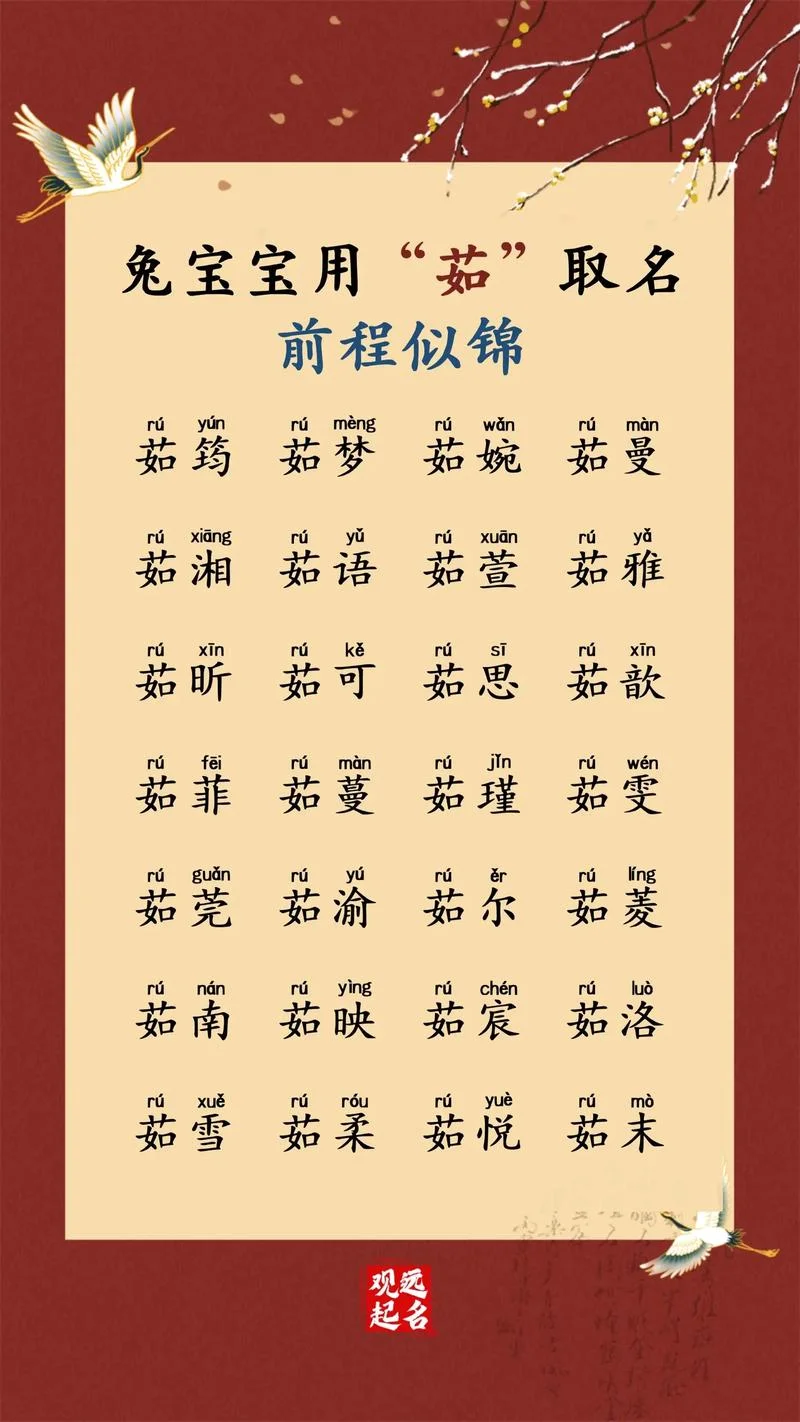 兔宝宝用“茹”取名
前程似锦
rú yún rú mèng rú wǎn rú màn
茹筠 茹梦 茹婉 茹曼
rú xiāng rú yǔ rú xuān rú yǎ
茹湘 茹语 茹萱 茹雅
rú xīn rú kě rú sī rú xīn
茹昕 茹可 茹思 茹歆
rú fēi rú màn rú jǐn rú wén
茹菲 茹蔓 茹瑾 茹雯
rú guǎn rú yú rú ěr rú líng
茹莞 茹渝 茹尔 茹菱
rú nán rú yìng rú chén rú luò
茹南 茹映 茹宸 茹洛
rú xuě rú róu rú yuè rú mò
茹雪 茹柔 茹悦 茹末
观远
起名